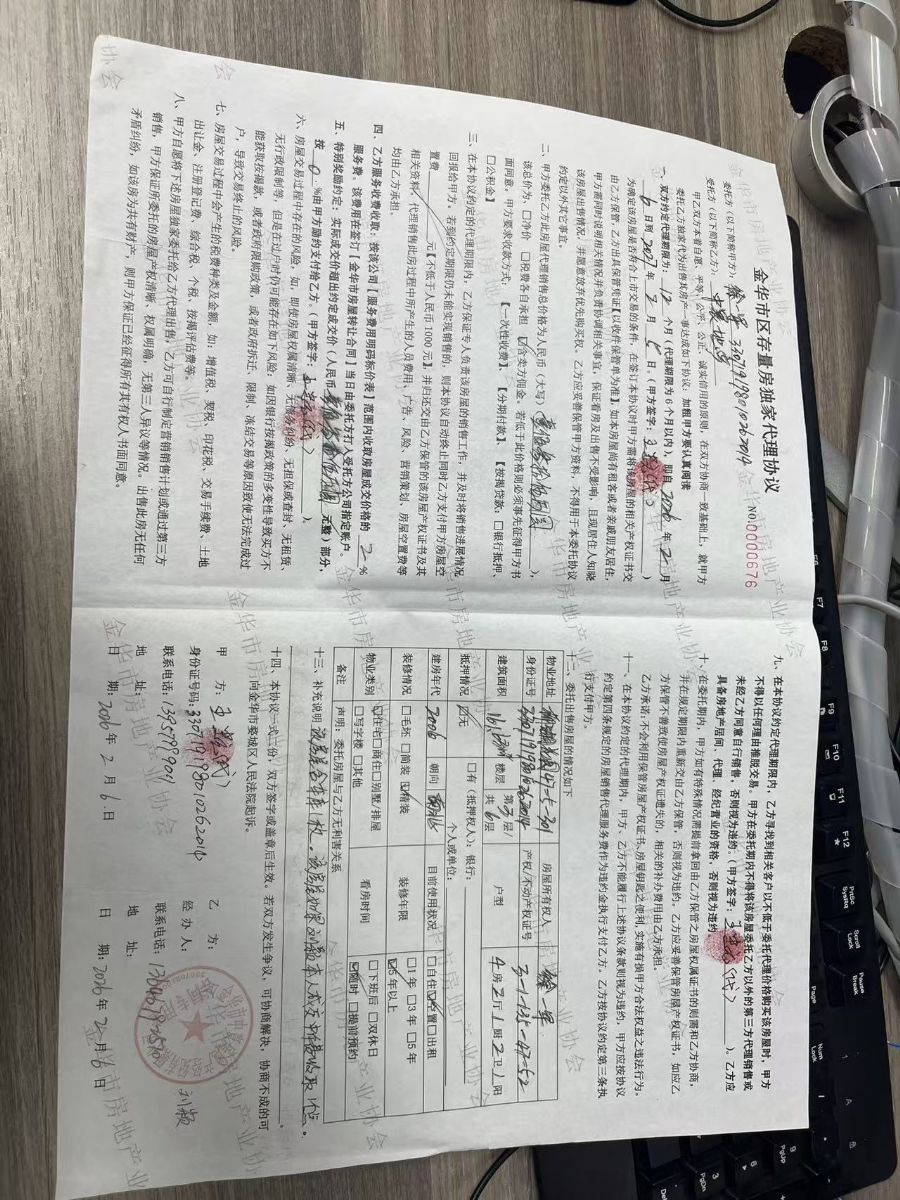 金华市区存量房独家代理协议
NO.0000676
委托方（以下简称甲方）：徐一军 330719198010262014
受托方（以下简称乙方）：中晟地产
甲乙双方本着自愿、平等、公平、公正、诚实信用的原则，在双方协商一致基础上，就甲方
委托乙方独家代为出售其房产一事达成如下协议，加粗甲方要认真阅读
一、双方约定代理期为：12个月（（代理期限为6个月以内），即自2026年2月
6日到2027年2月5日。（甲方签字：）
为确定该房屋是否符合上市交易的条件，在签订本协议时甲方需将该房屋的相关产权证书交
由乙方保管，乙方出具保管凭证【以收件保管单为准】如本房屋尚有租客或者亲戚朋友居住，
甲方需同时说明相关情况并负责协调相关事宜，保证看房及出售不受影响，且现居住人知晓
该房屋出售情况，并同意放弃优先购买权。乙方应妥善保管甲方资料，不得用于本委托协议
约定以外其它事宜。
二、甲方委托乙方此房屋代理销售总价格为人民币（大写）（），
该总价为：□净价 □税费各自承担 ☑含卖方佣金，若低于此价格则必须事先征得甲方书
面同意，甲方要求收款方式：【一次性收费】、【分期付款】、【按揭贷款、□银行抵押、
□公积金】
三、在本协议约定的代理期限内，乙方保证专人负责该房屋的销售工作，并及时将销售进展情况
回报给甲方。若到约定期限仍未能实现销售的，则本协议自动废止同时乙方支付甲方房屋空
置费元【不低于人民币1000元】并归还交由乙方保管的该房屋产权证书及其
相关资料，代理销售此房过程中所产生的人员费用、广告、风险、营销策划、房屋空置费等
均由乙方承担
四、乙方服务收费收取：按该公司【服务费用明码标价表】范围内收取房屋成交价格的2%
服务费。该费用在签订【金华市房屋转让合同】当日由委托方打入受托方公司指定账户。
五、特别奖励约定：实际成交价超出约定成交价（人民币元整）部分，
按0%由甲方励约支付给乙方。（甲方签字：）
六、房屋交易过程中存在的风险，如，即使房屋权属清晰、无债务纠纷、无担保或查封、无租赁、
无行政限制等，但是在过户时仍可能存在如下风险：如因银行按揭政策的多变性导致买方不
能获取按揭款，或者政府限购政策，或者政府拆迁、限制、冻结交易等原因致使无法完成过
户，导致交易终止的风险。
七、房屋交易过程中会产生的税费种类及金额，如：增值税、契税、印花税、交易手续费、土地
出让金、注册登记费、综合税、个税、按揭评估费等。
八、甲方自愿将下述房屋独家委托给乙方代理出售，乙方可自行制定营销销售计划或通过第三方
销售，甲方保证所委托的房屋产权清晰、权属明确，无第三人异议等情况。出售此房无任何
矛盾纠纷，如该房为共有财产，则甲方保证已经征得所有其有权人书面同意。
九、在本协议约定代理期限内，乙方寻找到相关客户以不低于委托代理价格购买该房屋时，甲方
不得以任何理由推脱交易。甲方在委托期内不得将该房屋委托乙方以外的第三方代理销售或
未经乙方同意自行销售，否则视为违约。（甲方签字：）。乙方应
具备房地产居间、代理、经纪营业的资格，否则视为违约
十、在委托期内，甲方如有特殊情况需提前拿回由乙方保管之房屋权属证书的则需和乙方协商，
并在规定期限内重新交由乙方保管，否则视为违约。乙方应妥善保管房屋产权证书，如应乙
方保管不善致使房屋产权证遗失的，相关的补办费用由乙方承担。
乙方承诺:不会利用保管房屋产权证书、房屋钥匙之便利,实施有损甲方合法权益之违法行为。
十一、在本协议约定的代理期内，甲方、乙方不能履行上述协议条款则视为违约，甲方应按协议
约定第四条规定的房屋销售代理服务费作为违约金执行支付乙方。乙方按协议约定第三条执
行支付甲方。
十二、委托出售房屋的情况如下
物业地址 47-5-301 房屋所有权人 徐一军
身份证号 330719198010262014 产权/不动产权证号 3-1-35-47-52
建筑面积 161.63㎡ 楼层 第3层/共6层 户型 4房2厅1厨2卫1阳
抵押情况 ☑无 □有（抵押权人）：银行： 个人或单位：
建房年代 2006 朝向 南 目前使用状况 □自住☑空置□出租
装修情况 □毛坯 □简装 ☑精装 装修年限 □1年□3年□5年 ☑5年以上
物业类别 ☑住宅□商住□别墅/排屋 □写字楼 □其他 看房时间 □下班后 □双休日 ☑随时 □提前预约
备注 声明：委托房屋与乙方无利害关系
十三、补充说明
十四、本协议一式二份，双方签字或盖章后生效。若双方发生争议，可协商解决，协商不成的可
向金华市婺城区人民法院起诉。
甲 方： 乙 方：
身份证号码：330719198010262014 经 办 人：刘颖
联系电话：13957999901 联系电话：
地 址： 地 址：
日 期：2026年2月6日 日 期：2026年2月6日
金华市房地产业协会